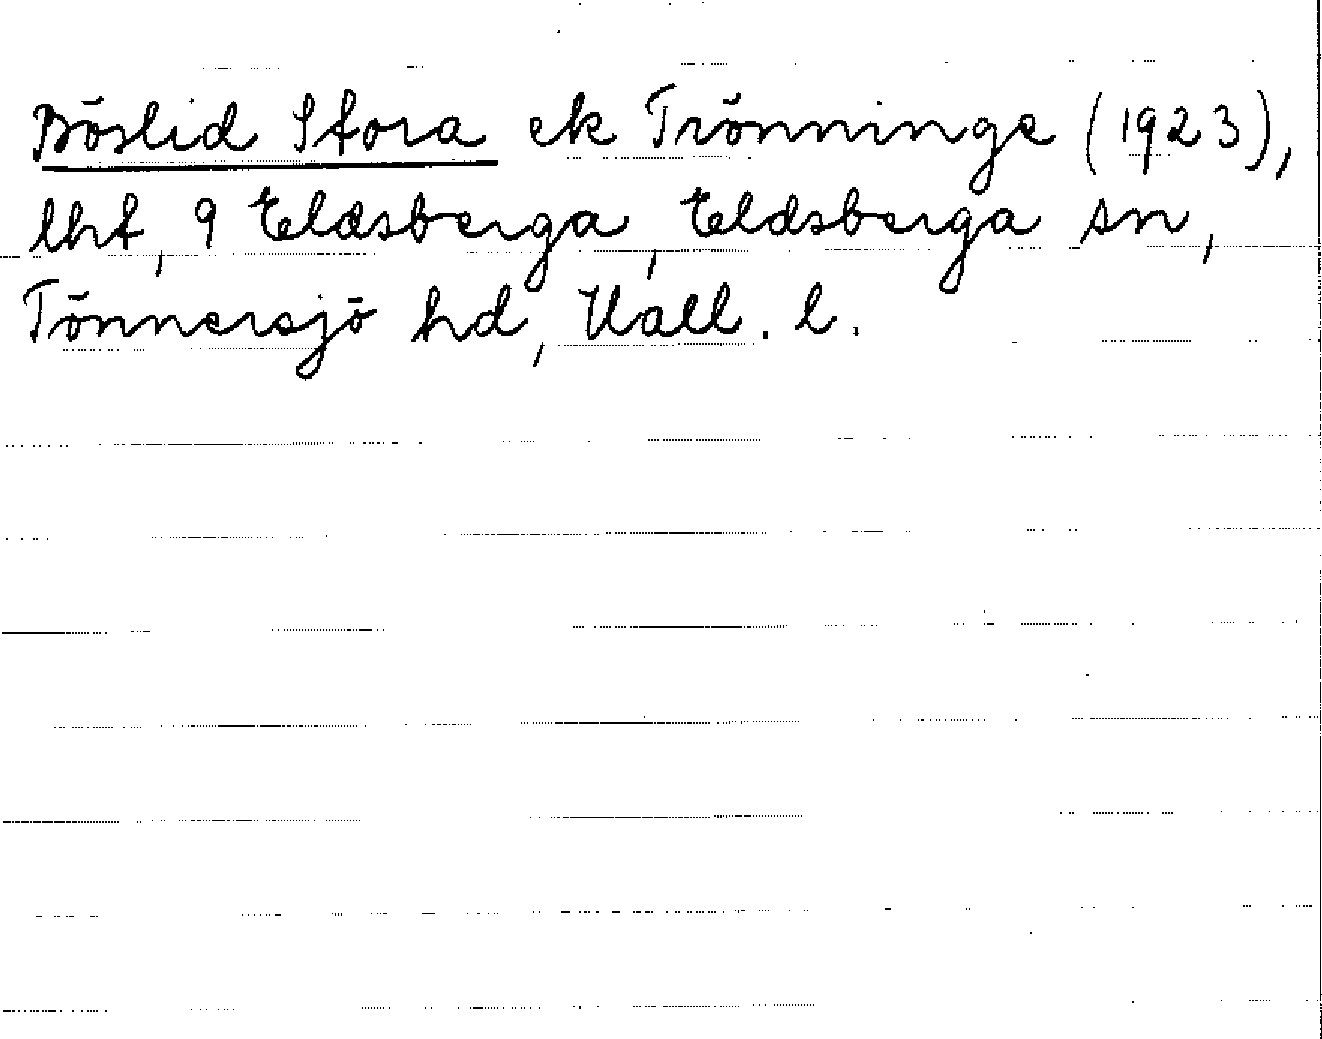 Böslid Stora ek Trönninge (1923),
lhf, 9 Eldsberga, Eldsberga sn,
Tönnersjö hd, Hall. l.